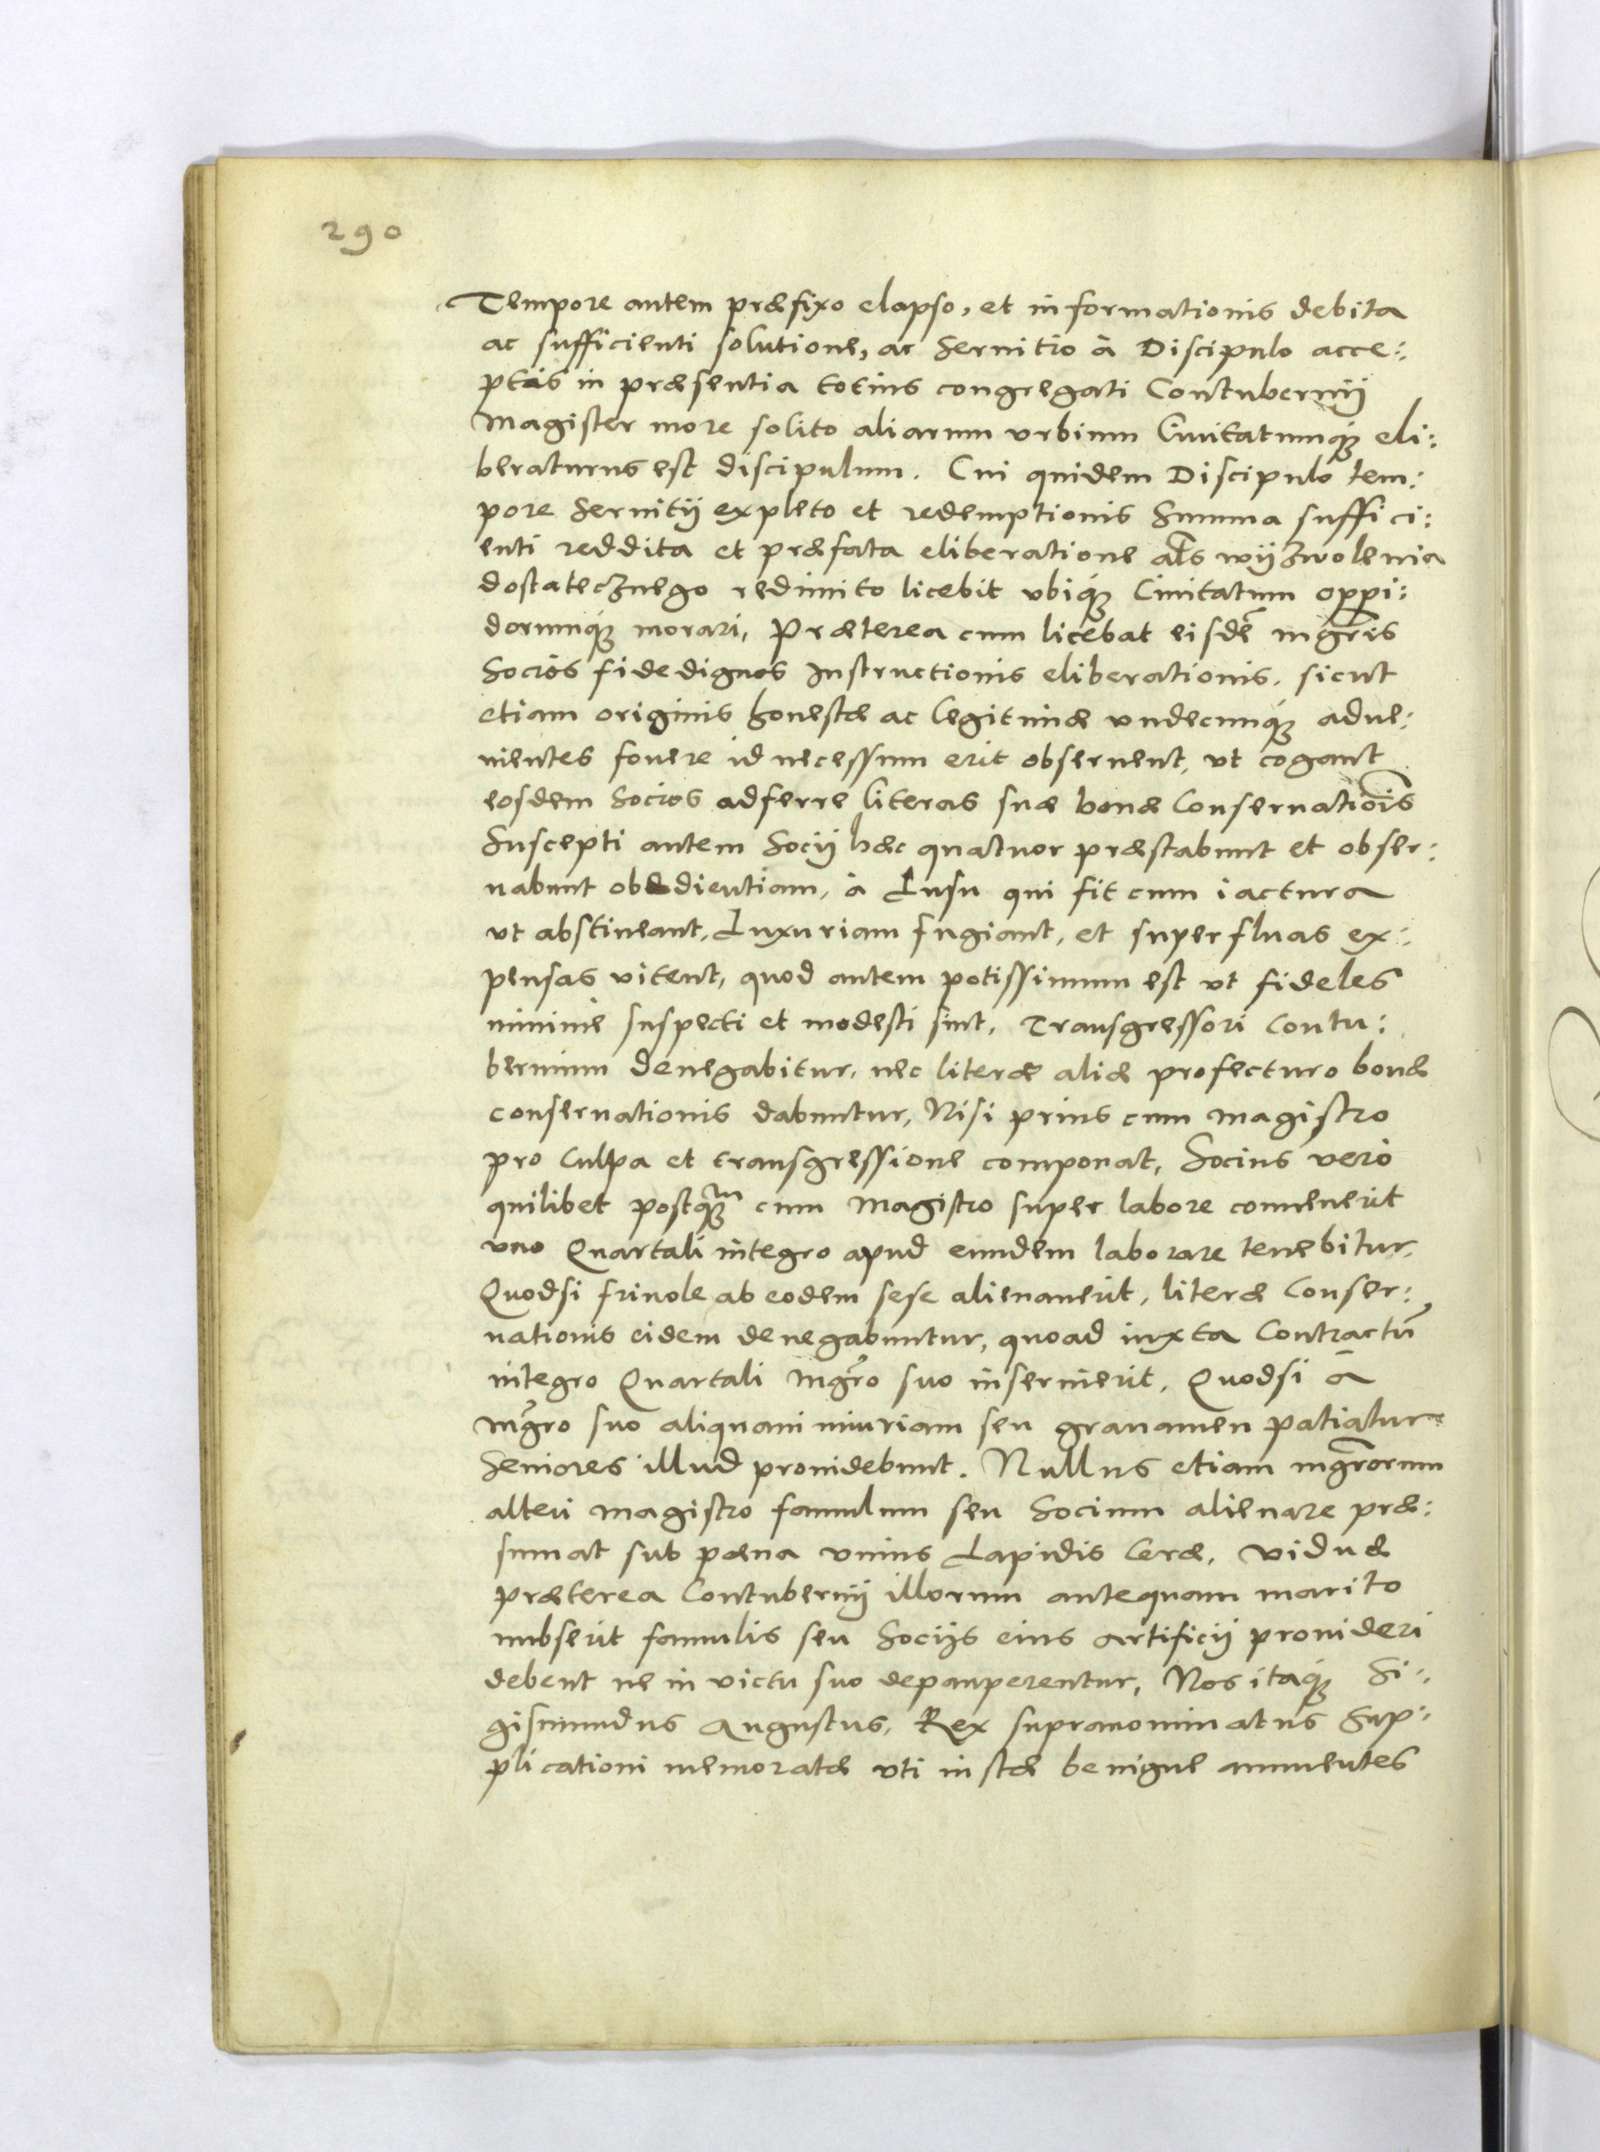 290
Tempore autem præfixo elapso, et informationis debita
ac sufficienti solutione, ac Seruitio à Discipulo acce:
ptis in præsentia totius congregati Contubernij
Magister more solito aliarum vrbium Ciuitatumq́ue eli:
beraturus est discipulum. Cui quidem Discipulo tem:
pore Seruitij expleto et redemptionis Summa suffici:
enti reddita et præfata eliberatione als wÿzwolenia
dostatecznego redimito licebit vbiq́ue Ciuitatum oppi:
dorumq́ue morari, Præterea cum licebat eisdē mgr̄is
Socios fidedignos Instructionis eliberationis, sicut
etiam originis honestæ ac legitimæ vndecunq́ue adue:
nientes fouere id necessum erit obseruent, vt cogant
eosdem Socios adferre literas suæ bonæ Conseruatiois
Suscepti autem Socij hæc quatuor præstabunt et obser:
uabunt obedientiam, à Lusu qui fit cum iactura
vt abstineant, Luxuriam fugiant, et superfluas ex:
pensas vitent, quod autem potissimum est vt fideles
minime suspecti et modesti sint, Transgressori Contu:
bernium denegabitur, nec literæ aliæ profecturo bonæ
conseruationis dabuntur, Nisi prius cum magistro
pro Culpa et transgressione componat, Socius verò
quilibet postq̃m cum Magistro super labore conuenerit
vno Quartali integro apud eundem laborare tenebitur,
Quodsi friuole ab eodem sese alienauerit, literæ Conser:
uationis eidem denegabuntur, quoad iuxta Contractū
integro Quartali Mgr̃o suo inseruierit, Quodsi à
Mgr̃o suo aliquam iniuriam seu grauamen patiatur
Seniores illud prouidebunt. Nullus etiam mgr̄orum
alteri magistro famulum seu Socium alienare præ:
sumat sub pæna vnius Lapidis Ceræ, viduæ
præterea Contubernij illorum antequam marito
nubserit famulis seu Socijs eius artificij prouideri
debent ne in victu suo depauperentur, Nos itaq́ue Si:
gismundus Augustus, Rex supranominatus Sup:
plicationi memoratæ vti iustæ benigne annuentes